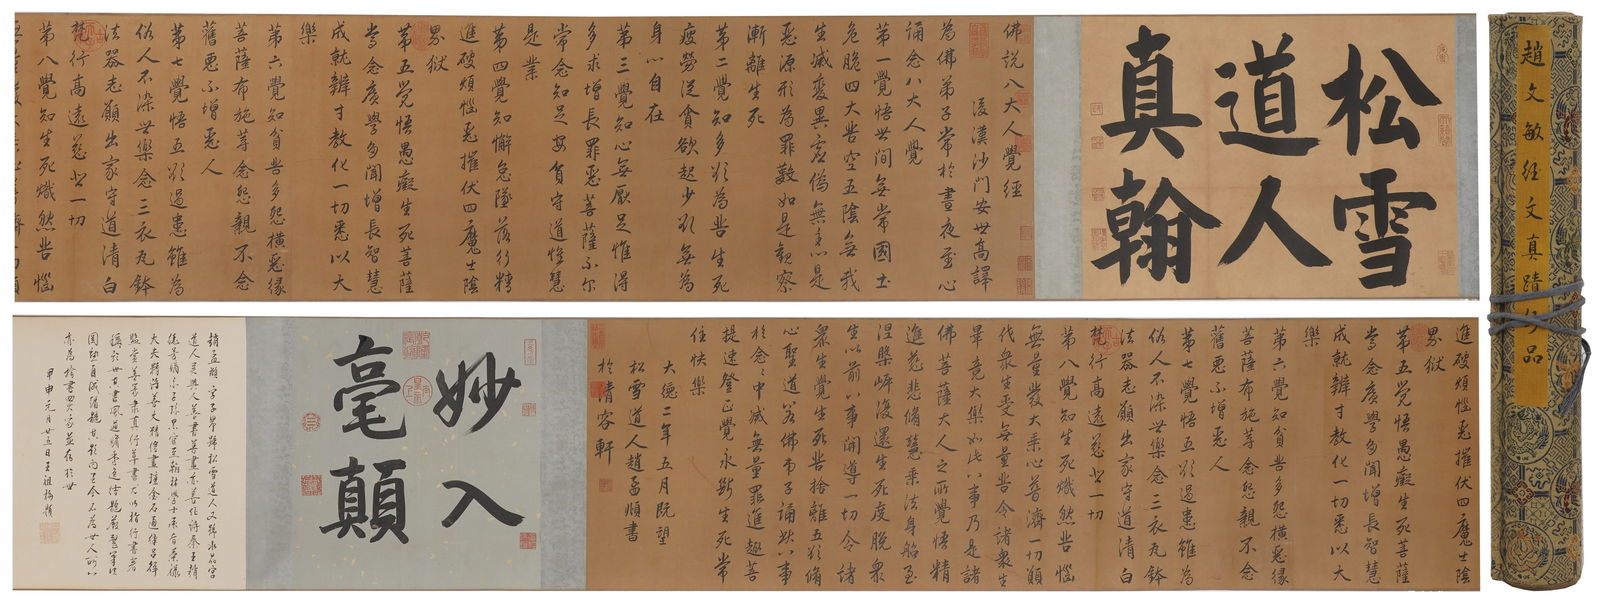 趙文敏经文真蹟妙品
松雪
道人
真翰
佛説八大人覺經
後漢沙門安世高譯
為佛弟子常於晝夜至心
誦念八大人覺
第一覺悟世間無常國土
危脆四大苦空五陰無我
生滅變異虛偽無主心是
惡源形為罪藪如是觀察
漸離生死
第二覺知多欲為苦生死
疲勞從貪欲起少欲無為
身心自在
第三覺知心無厭足惟得
多求增長罪惡菩薩不尔
常念知足安貧守道惟慧
是業
第四覺知懈怠墜落行精
進破煩惱惡摧伏四魔出陰
界獄
第五覺悟愚癡生死菩薩
常念廣學多聞增長智慧
成就辯才教化一切悉以大
樂
第六覺知貧苦多怨橫惡緣
菩薩布施等念怨親不念
舊惡不增惡人
第七覺悟五欲過患雖為
俗人不染世樂念三衣瓦鉢
法器志願出家守道清白
梵行高遠慈悲一切
第八覺知生死熾然苦惱
無量發大乘心普濟一切願
進破煩惱惡摧伏四魔出陰
界獄
第五覺悟愚癡生死菩薩
常念廣學多聞增長智慧
成就辯才教化一切悉以大
樂
第六覺知貧苦多怨橫惡緣
菩薩布施等念怨親不念
舊惡不增惡人
第七覺悟五欲過患雖為
俗人不染世樂念三衣瓦鉢
法器志願出家守道清白
梵行高遠慈悲一切
第八覺知生死熾然苦惱
無量發大乘心普濟一切願
代衆生受無量苦令諸衆生
畢竟大樂如此八事乃是諸
佛菩薩大人之所覺悟精
進慈悲脩慧乘法身船至
涅槃岸復還生死度脫衆
生以前八事開導一切令諸
衆生覺生死苦捨離五欲脩
心聖道若佛弟子誦此八事
於念念中滅無量罪進趣菩
提速登正覺永斷生死常
住快樂
大德二年五月既望
松雪道人趙孟頫書
於清容軒
妙入
毫顛
趙孟頫字子昂號松雪道人又號水晶宮
道人吳興人善書善畫
甲申元月廿五日王祖